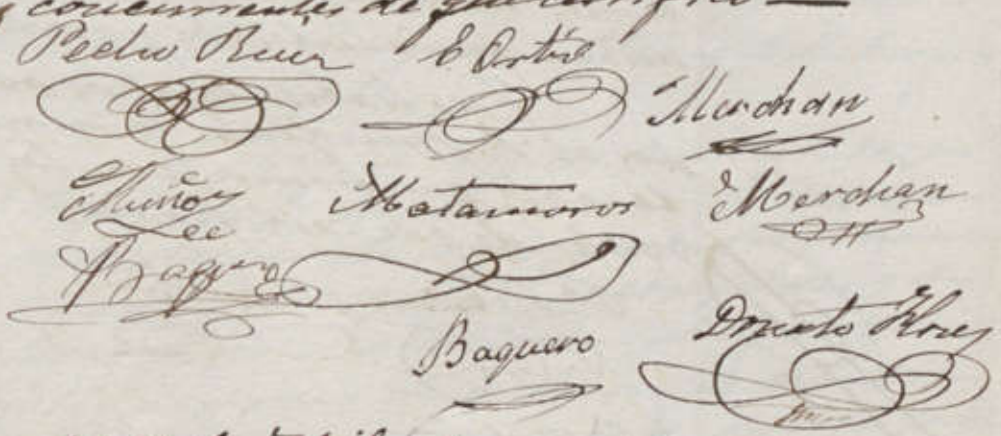 concurrentes de que certifico —
Pedro Ruiz E Ortiz
Merchan
Muñoz Matamoros Merchan
Lee
Baquero
Baquero Donato Flores